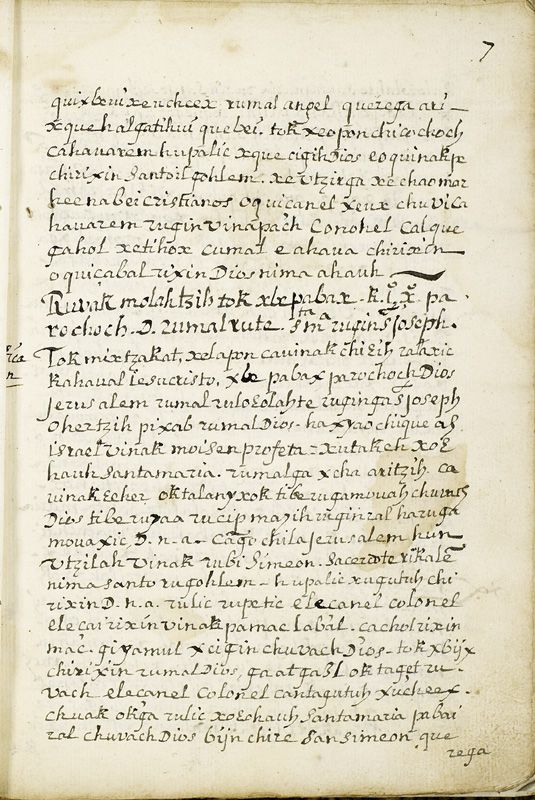 7
quixbeui xeucheex rumal angel querega ari
xqueh algatihui quebei. tok xeopon chicochoch
cahauarem hupalic xque cigih Dios eoquinak pe
chirixin Santoil gohlem. xe vtzirga xe chaomar
hee nabei cristianos oquicanel xeux chuvi ca
hauarem rugin vinapach Colonel Calque
gahol xetihox cumal e ahaua chirixin
oquicabal rixin Dios nima ahauh
Ruvak molahtzih tok xbe pabax. K. I. X. pa
rochoch. D. rumal rute. Sta ma rugin S Joseph.
Tok mixtzakat, xelapon cauinak chi Eih ralaxic
Kahaual Iesucristo, xbe pabax parochoch Dios
Jerusalem rumal ruloEolahte rugingaS Joseph
Ohertzih pixab rumal Dios. haxyao chiique al
israel vinak moisen profeta xutakeh xoE
hauh Santamaria. rumalga xcha aritzih. ca
uinak Eeher ok talanyxok tibe rugamouah chuvach
Dios tibe ruyaa rucipmayih rugin ral haruga
mouaxic D. n. a. Cago chila Jerusalem hun
vtzilah vinak rubi Simeon. Sacerdote rikale
nima santo rugohlem hupalic xugutuh chi
rixin D. n. a. rulic rupetic elecanel colonel
elecai rixin vinak pamac labal. cacholrixin
mac. qiyamul xcigin chuvach Dios. tok xbijx
chirixin rumal Dios, ga atga3l ok taget ru
vach elecanel Colonel cantagutuh xucheex.
chuak okga rulic xoEohauh Santamaria pabai
ral chuvach Dios bijn chire San simeon que
rega